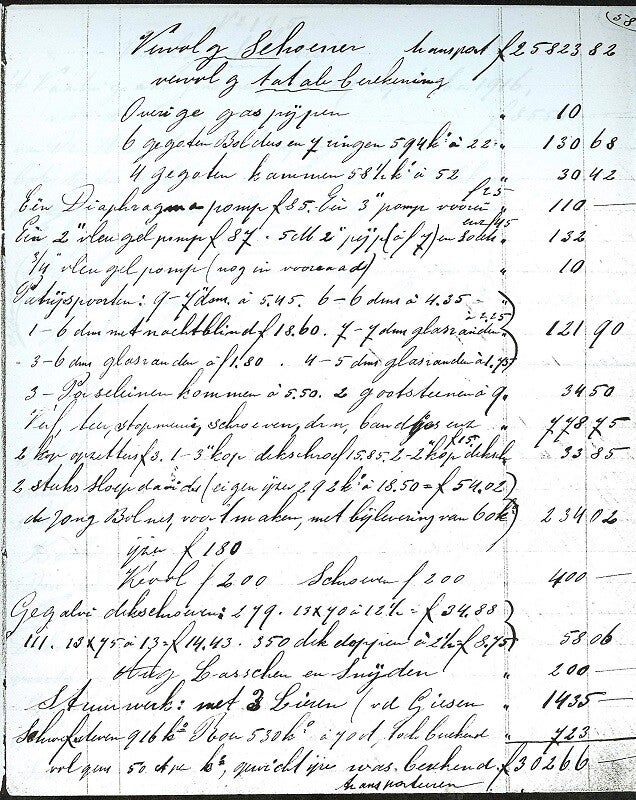 58
Vervolg Schoener transport f 25823 82
vervolg totale berekening
Overige gaspijpen " 10
6 gegoten Bolders en 7 ringen 594 k° à 22 " 130 68
4 gegoten kammen 58½ k° à 52 " 30 42
Eén Diaphragma pomp f 85. Eén 3" pomp voorin f 25 " 110 —
Eén 2" vleugel pomp f 87. 5 M 2" pijp (à f 7) en enz f 45 " 132
3/4" vleugel pomp (nog in voorraad) " 10
Patrijspoorten: 9 - 7" dms. à 5.45. 6 - 6 dms à 4.35 -
1 - 6 dms met nachtblind f 18.60. 7 - 7 dms glasranden à 2.25 121 90
- 3 - 6 dms glasranden à f 1.80. 4 - 5 dms glasranden à 1.75
3 - Porseleinen kommen à 5.50. 2 gootsteenen à 9. 34 50
Verf, teer, stopmenie, schroeven, d.r.n, bandjes enz " 778 75
2 kop opzetters f 3. 1 - 3" kop dekschroef 15.85. 2 - 2" kop deksch f 15. 33 85
2 stuks sloepdavids (eigen ijzer 292 k° à 18.50 = f 54.02
de Jong Bolnes, voor 't maken, met bijlevering van 60 k° 234 02
ijzer f 180
Kevol f 200 Schroeven f 200 400 —
Gegalvi dekschroeven: 279. 13 x 70 à 12½ = f 34.88
111. 13 x 75 à 13 = f 14.43. 350 dekdoppen à 2½ = f 8.75 58 06
Aug Lasschen en Snijden " 200 —
Stuurwerk: met 3 Lieren (vd Giesen " 1435 —
916 k° 530 k° à 70 ct, toch berekend " 723
volgens 50 ct pr k°, gewicht ijzer was berekend f 30266 —
transporteeren